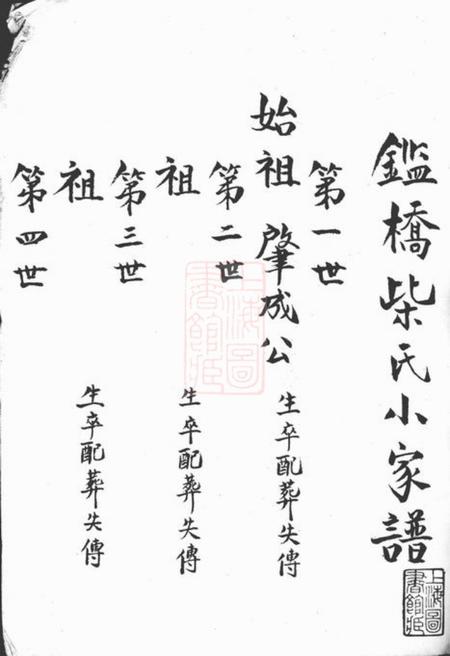 鑑橋柴氏小家譜
第一世
始祖 肇成公 生卒配葬失傳
第二世
祖 生卒配葬失傳
第三世
祖 生卒配葬失傳
第四世
上海圖書館藏
上海圖書館藏